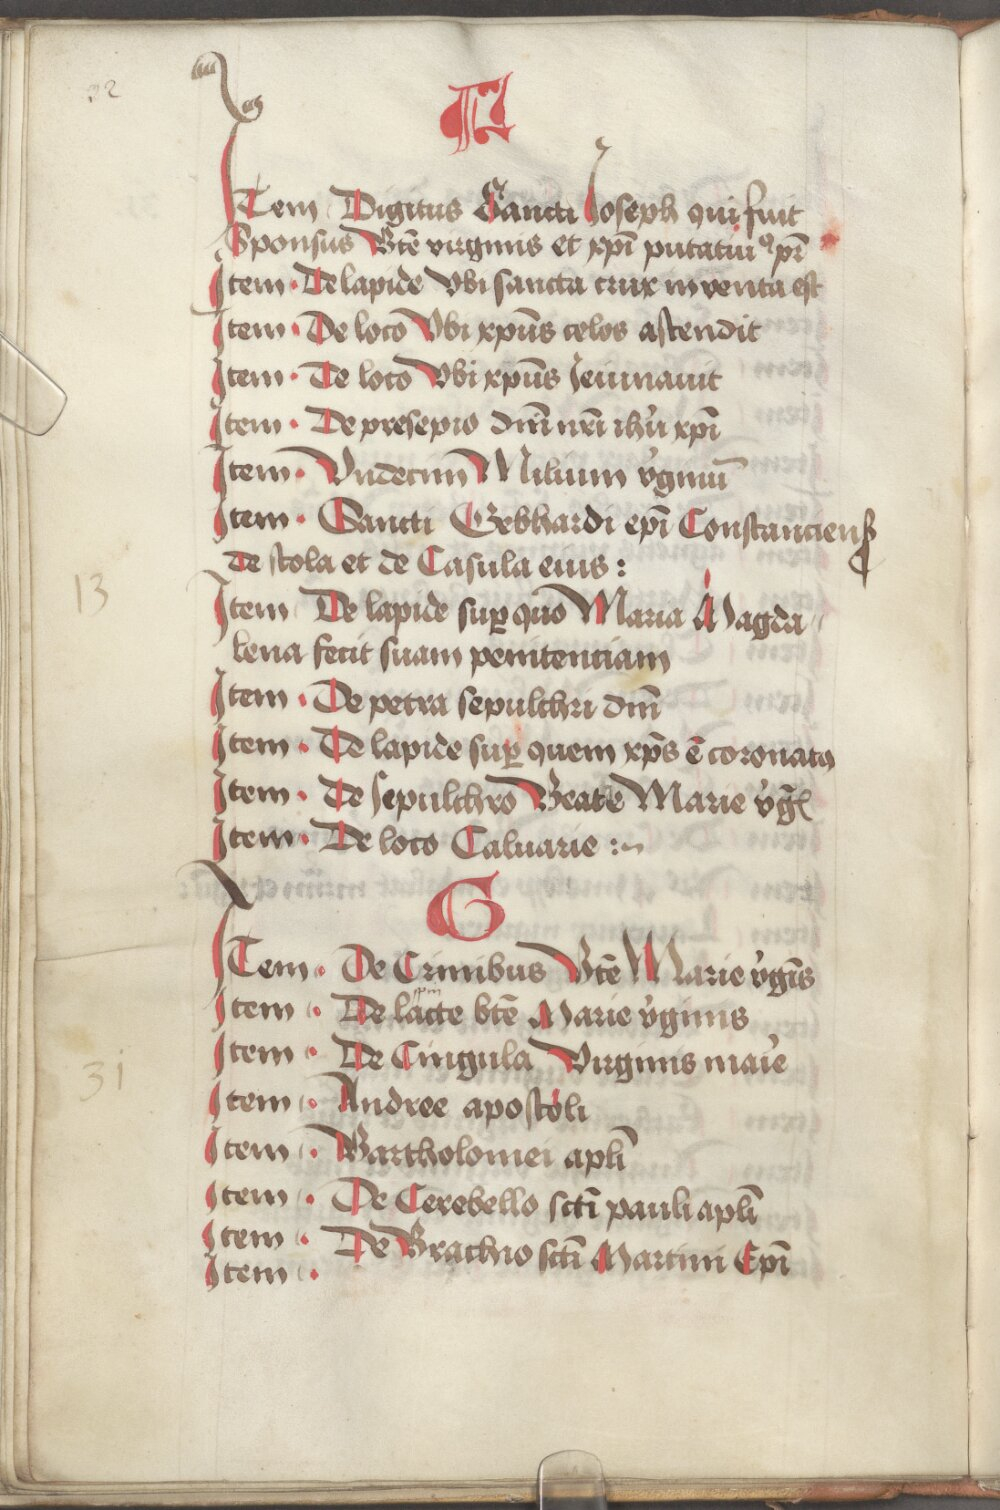 32
F
Item Digitus Sancti Joseph qui fuit
Sponsus Btē virginis et xpī putatiuꝰ pr̄
Item · De lapide Vbi sancta crux inventa est
Item · De loco Vbi xpūs celos ascendit
Item · De loco Vbi xpūs Jeiunauit
Item · De presepio dnī nrī ihū xpī
Item · Vndecim Milium v̓ginū
Item · Sancti Gebhardi epī Constanciensꝭ
de stola et de Casula eius :
13
Item De lapide suꝑ quo Maria Magda
lena fecit suam penitentiam
Item · De petra sepulchri dnī
Item · De lapide suꝑ quem xps̄ ē coronatꝰ
Item · De sepulchro Beate Marie v̓ḡ
Item · De loco Caluarie :~
G
Item · De Crinibus Btē Marie v̓gīs
Item · De lacte btē Marie v̓ginis
31
Item · De Cingula Virginis mar̄ie
Item · Andree apostoli
Item · Bartholomei aplī
Item · De Cerebello sctī pauli aplī
Item · De Brachio sctī Martini Epī
Item ·